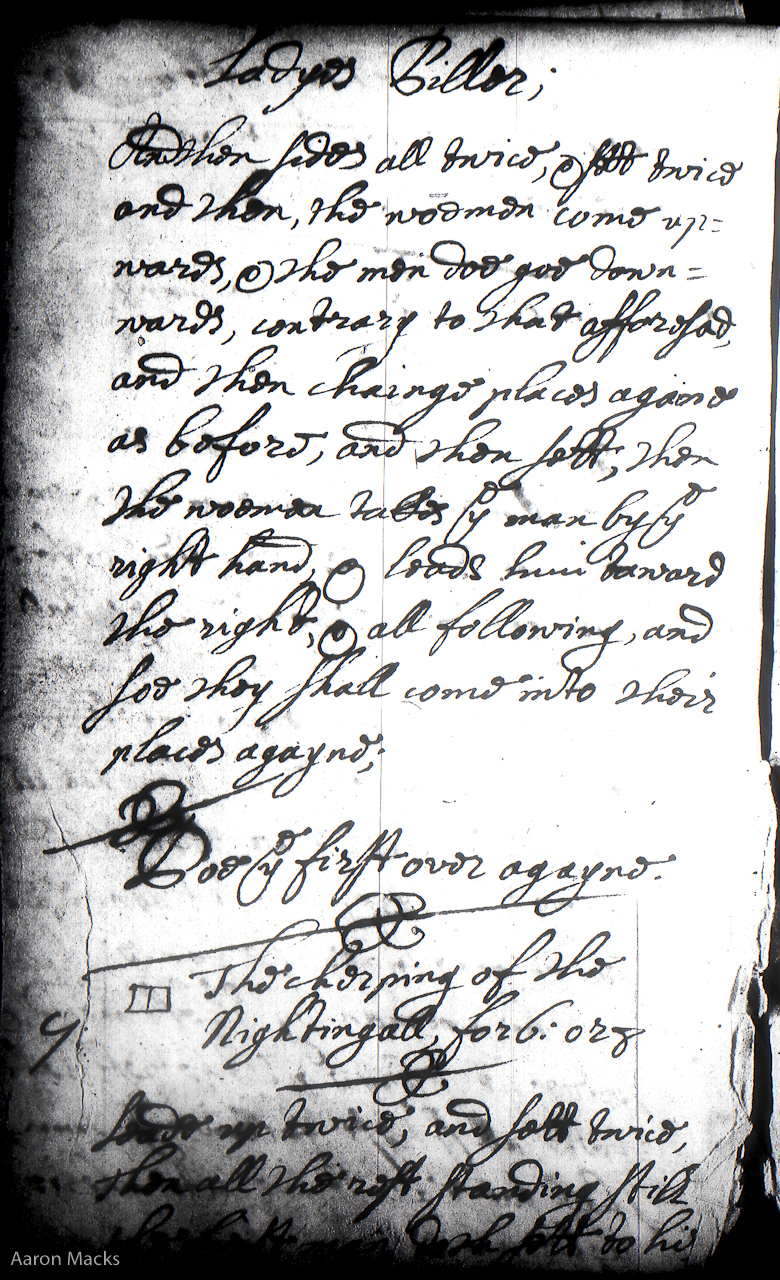 Ladyes Piller;
And then sides all twice, & sett twice
and then, the woemen come up=
wards, & the men doe goe down=
wards, contrary to that afforesad,
and then chainge places againe
as before, and then sett, then
the woeman takes ye man by ye
right hand, & leads him toward
the right, & all following, and
soe they shall come into their
places agayne;
Doe ye first over agayne.
The cherping of the
9 Nightingall, for 6: or 8
Leade up twice, and sett twice,
then all the rest standing still
man doth sett to his
Aaron Macks